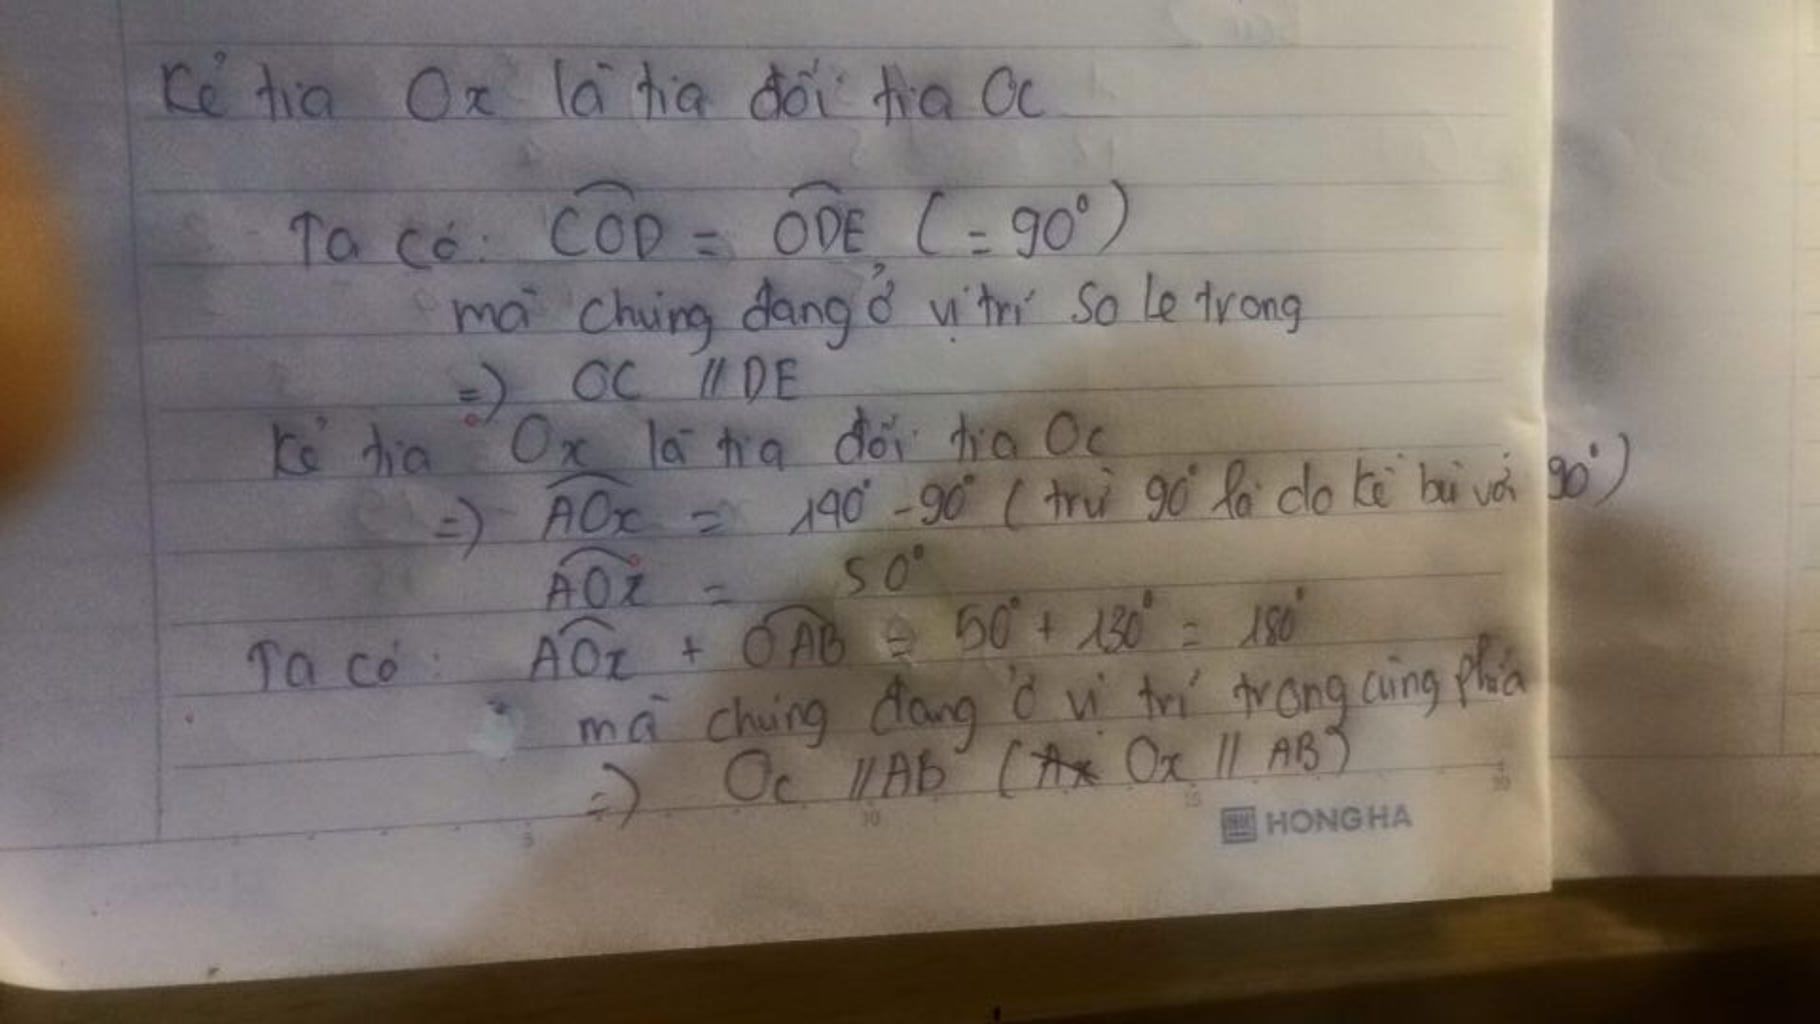 Kẻ tia Ox là tia đối tia OC
Ta có: COD = ODE (= 90°)
mà chúng đang ở vị trí so le trong
=) OC // DE
Kẻ tia Ox là tia đối tia Oc
=) AOx = 140° - 90° (trừ 90° là do kề bù với 90°)
AOx = 50°
Ta có: AOx + OAB = 50° + 130° = 180°
mà chúng đang ở vị trí trong cùng phía
=) Oc // AB (Ox // AB)
5 10 15 20
HONG HA